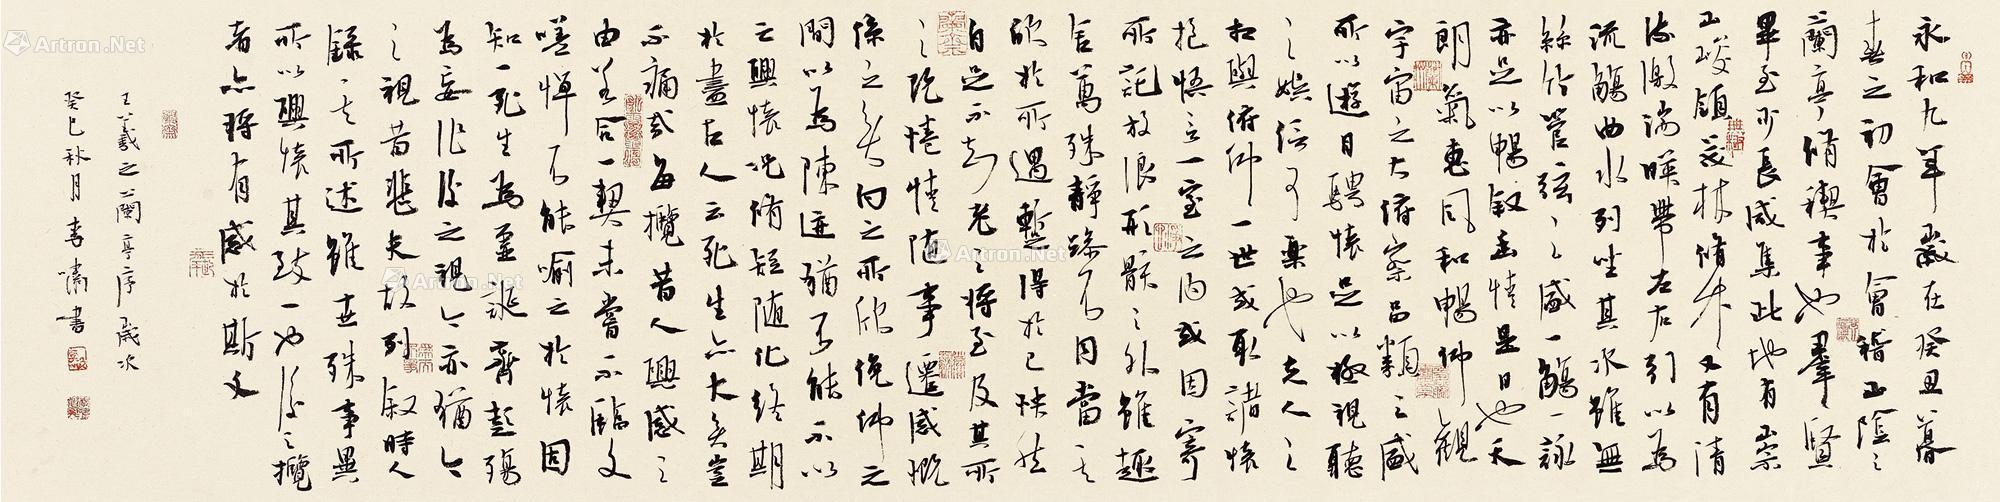 永和九年歲在癸丑暮
春之初會於會稽山陰之
蘭亭脩禊事也羣賢
畢至少長咸集此地有崇
山峻領茂林脩竹又有清
流激湍暎帶左右引以為
流觴曲水列坐其次雖無
絲竹管弦之盛一觴一詠
亦足以暢敘幽情是日也天
朗氣惠風和暢仰觀
宇宙之大俯察品類之盛
所以遊目騁懷足以極視聽
之娛信可樂也夫人之
相與俯仰一世或取諸懷
抱悟言一室之內或因寄
所託放浪形骸之外雖趣
舍萬殊靜躁不同當其
欣於所遇暫得於己快然
自足不知老之將至及其所
之既惓情隨事遷感慨
係之矣向之所欣俛仰之
間以為陳迹猶不能不以
之興懷況脩短隨化終期
於盡古人云死生亦大矣豈
不痛哉每攬昔人興感之
由若合一契未嘗不臨文
嗟悼不能喻之於懷固
知一死生為虛誕齊彭殤
為妄作後之視今亦猶今
之視昔悲夫故列敘時人
錄其所述雖世殊事異
所以興懷其致一也後之攬
者亦將有感於斯文
王羲之蘭亭序歲次
癸巳秋月李嘯書
Artron.Net
Artron.Net
Artron.Net
Artron.Net
Artron.Net